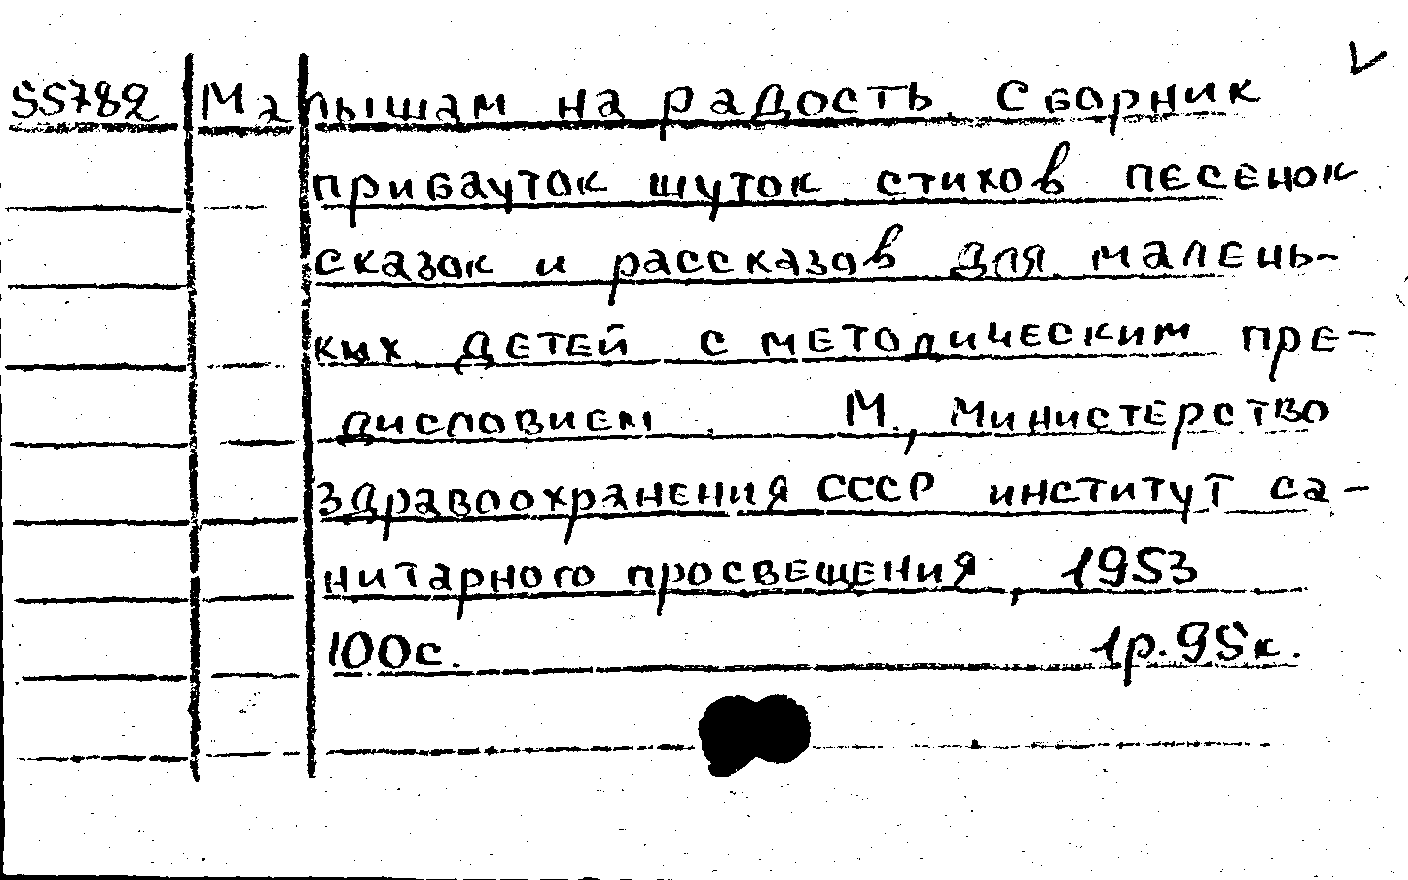 55782 Малышам на радость. Сборник
прибауток шуток стихов песенок
сказок и рассказов для малень-
ких детей с методическим пре-
дисловием. М., Министерство
здравоохранения СССР институт са-
нитарного просвещения, 1953
100с. 1р.95к.